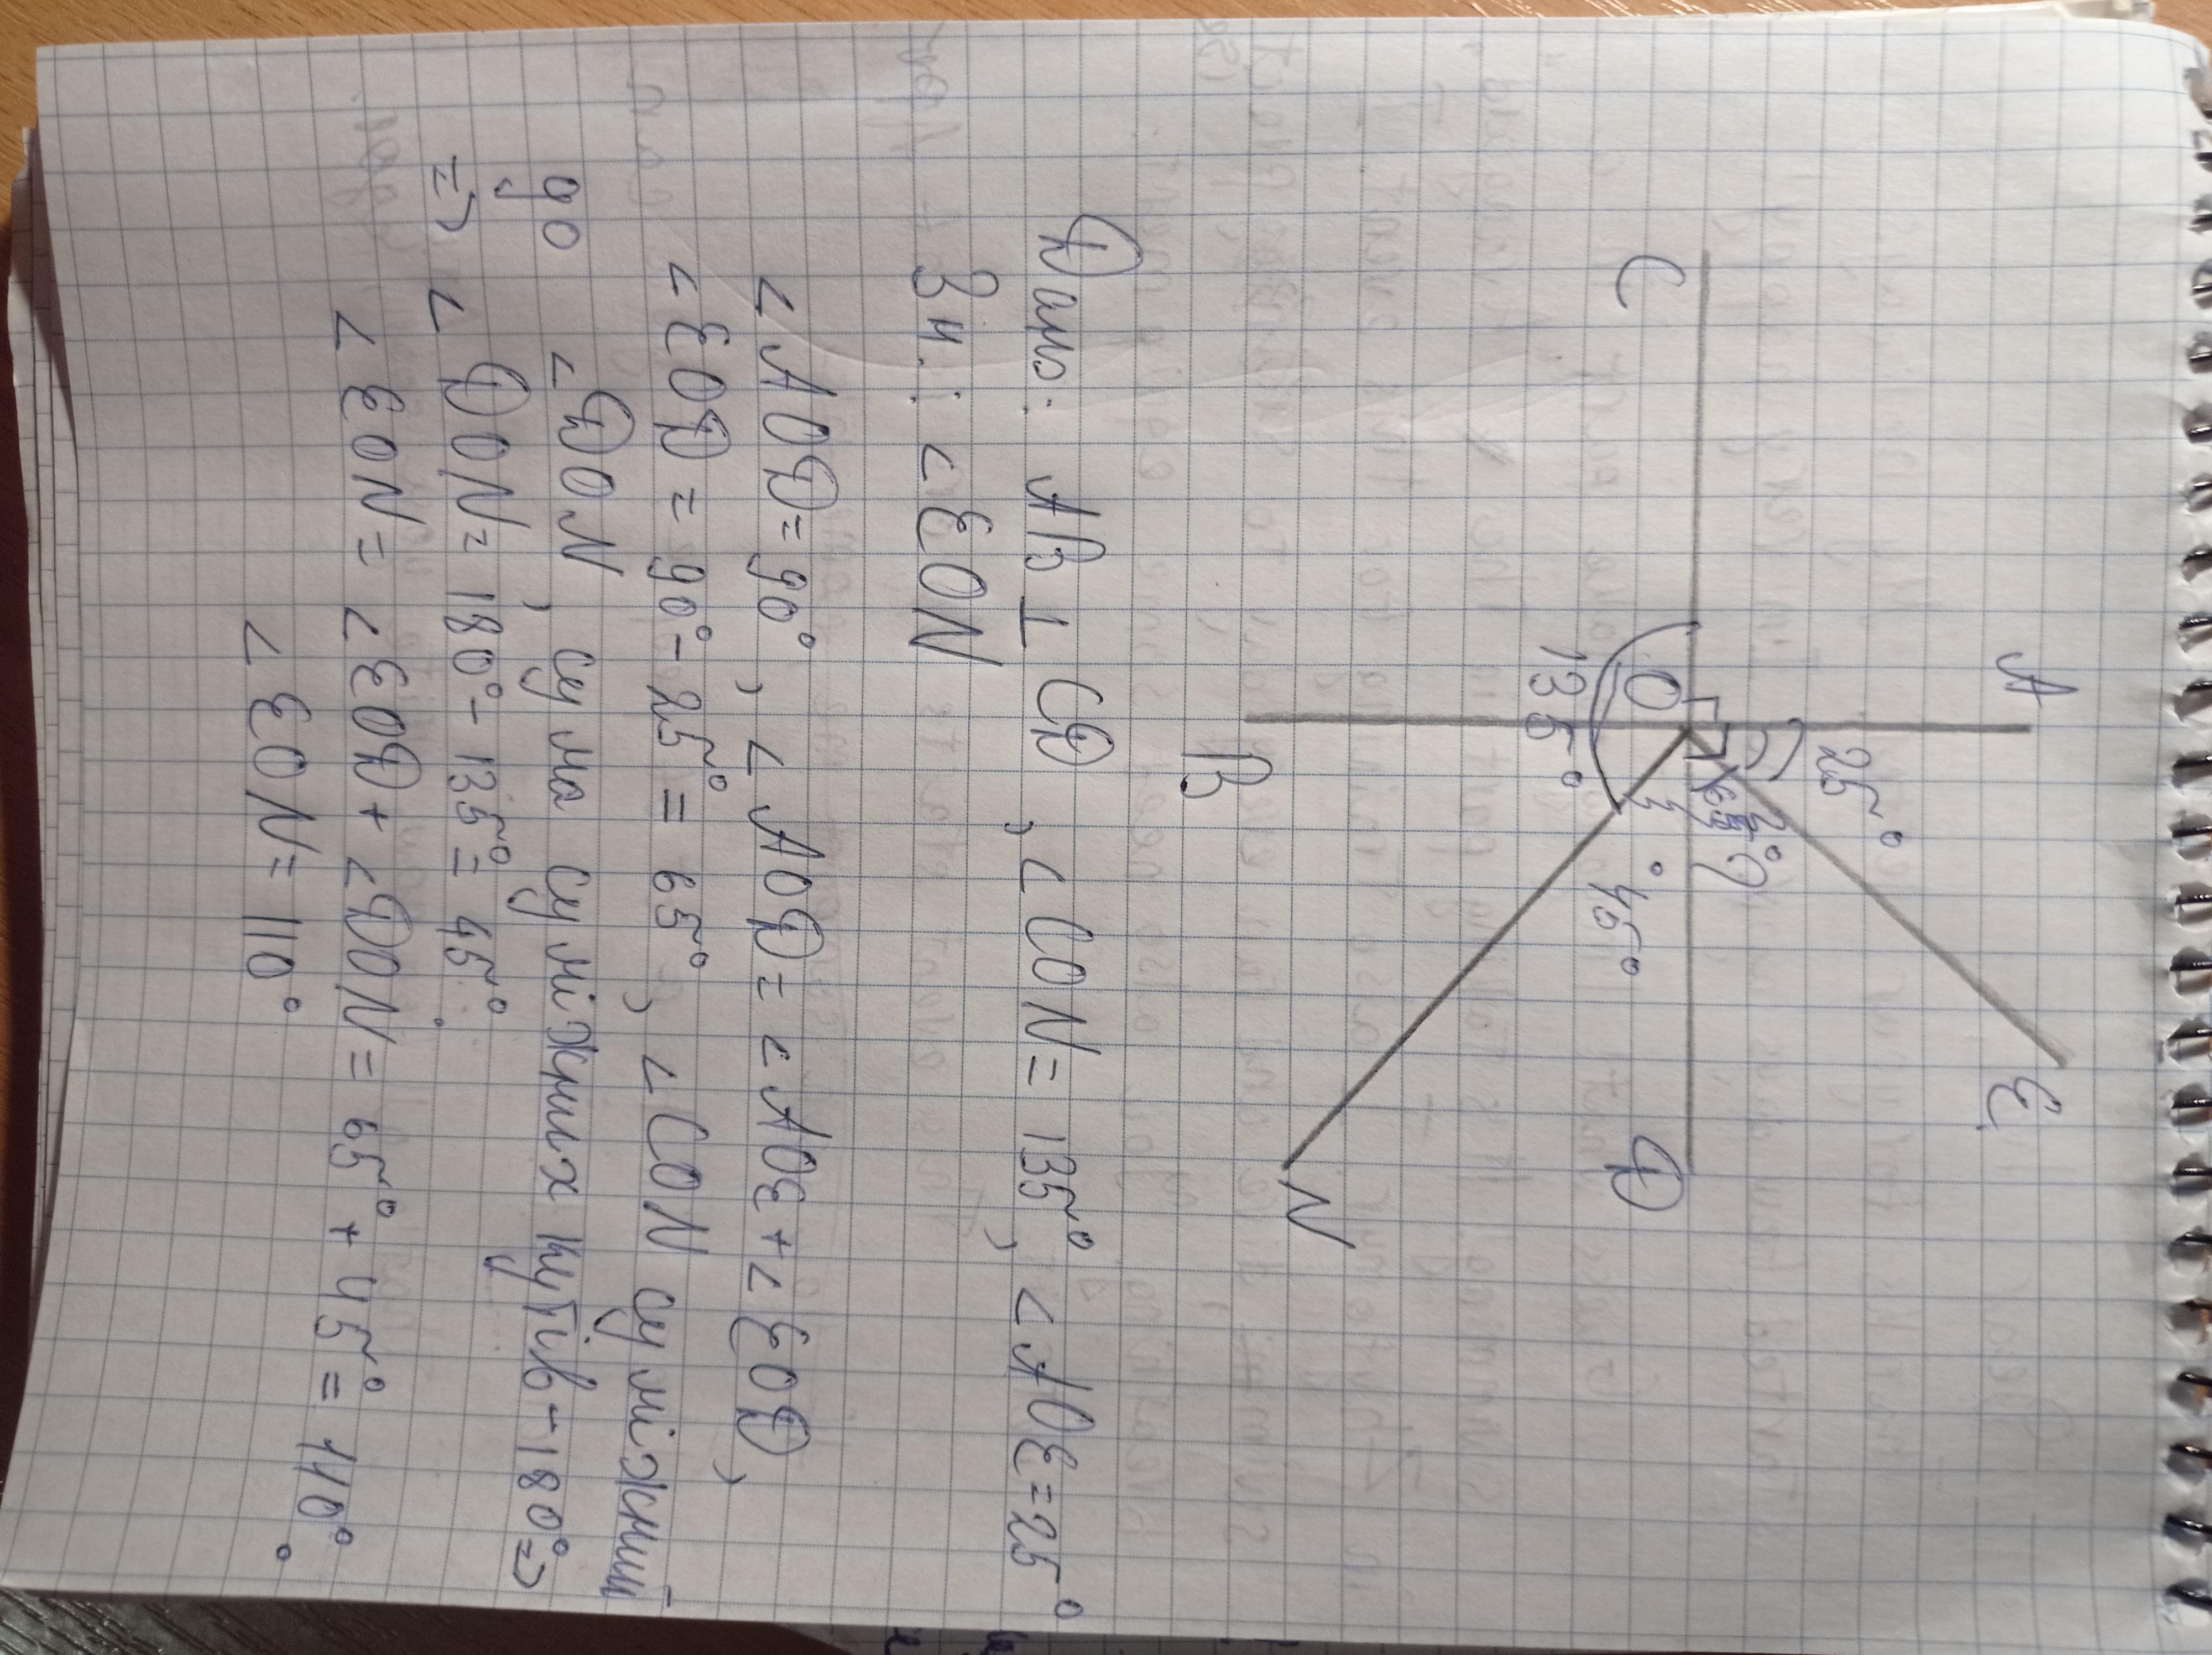 A
E
25°
C
O
65°?
D
135°
45°
B
N
Дано: AB ⊥ CD, ∠CON = 135°, ∠AOE = 25°
Зн.: ∠EON
∠AOD = 90°, ∠AOD = ∠AOE + ∠EOD,
∠EOD = 90° - 25° = 65°, ∠CON суміжний
до ∠DON, сума суміжних кутів - 180° =>
=> ∠DON = 180° - 135° = 45°.
∠EON = ∠EOD + ∠DON = 65° + 45° = 110°.
∠EON = 110°